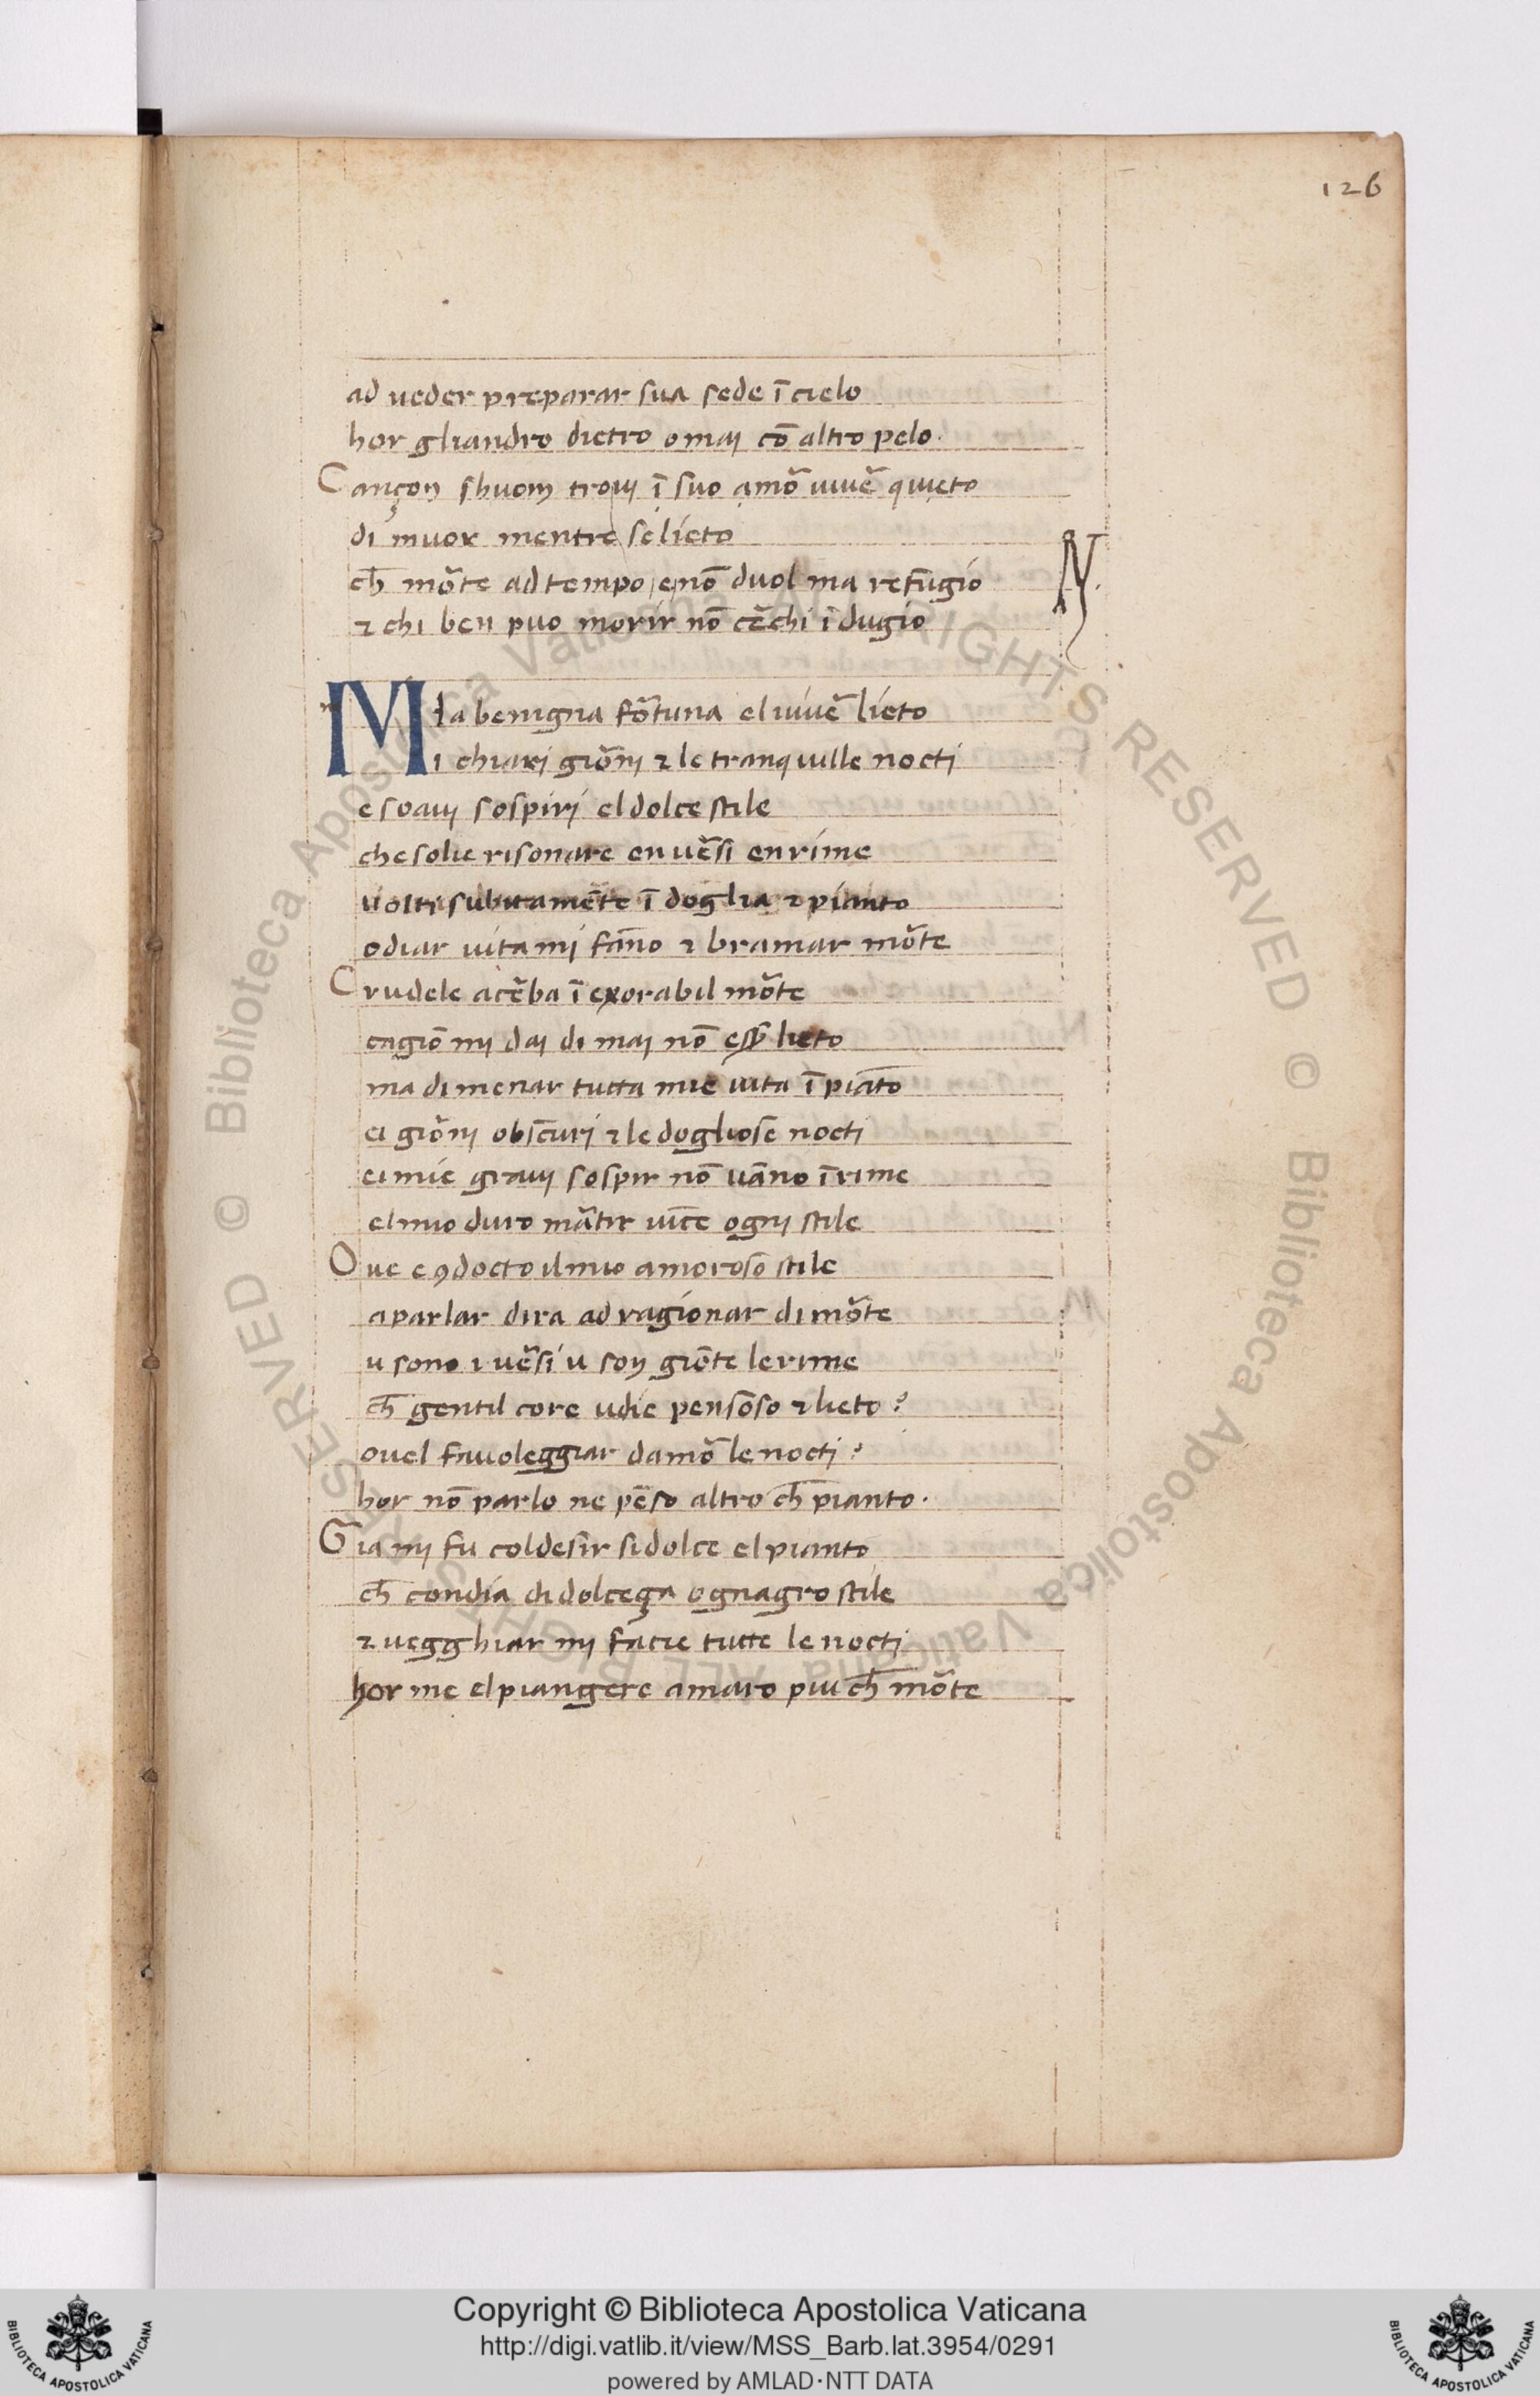 126
ad ueder preparar sua sede ī cielo
hor gliandro dietro omaj cō altro pelo.
Cançon shuom trouj ī suo amor̄ uiuer̄ quieto
di muor mentre se lieto
ch̄ mōte ad tempo e nō duol ma refugio
⁊ chi ben puo morir nō cēchi īdugio
N.
Mia benigna fōtuna el uiuer̄ lieto
i chiarj giōnj ⁊ le tranquille noctj
e soauj sospirj el dolce stile
che solie risonare en uēsi en rime
uolti subitamēte ī doglia ⁊ pianto
odiar uita mj fāno ⁊ bramar mōte
Crudele acēba īexorabil mōte
cagiō mj daj di maj nō esser̄ lieto
ma di menar tutta mie uita ī piāto
ei giōnj obscurj ⁊ le dogliose noctj
ei mie grauj sospir nō uāno ī rime
el mio duro mātir uīce ognj stile
Oue e ꝯdocto il mio amoroso stile
a parlar dira ad ragionar di mōte
u sono i uēsi u son giōte le rime
ch̄ gentil core udie pensoso ⁊ lieto?
ouel fauoleggiar damor̄ le noctj?
hor nō parlo ne pēso altro ch̄ pianto.
Gia mj fu col desir si dolce el pianto
ch̄ condia di dolceça ognagro stile
⁊ uegghiar mj facie tutte le noctj
hor me el piangere amaro piu ch̄ mōte
Copyright © Biblioteca Apostolica Vaticana
http://digi.vatlib.it/view/MSS_Barb.lat.3954/0291
powered by AMLAD·NTT DATA